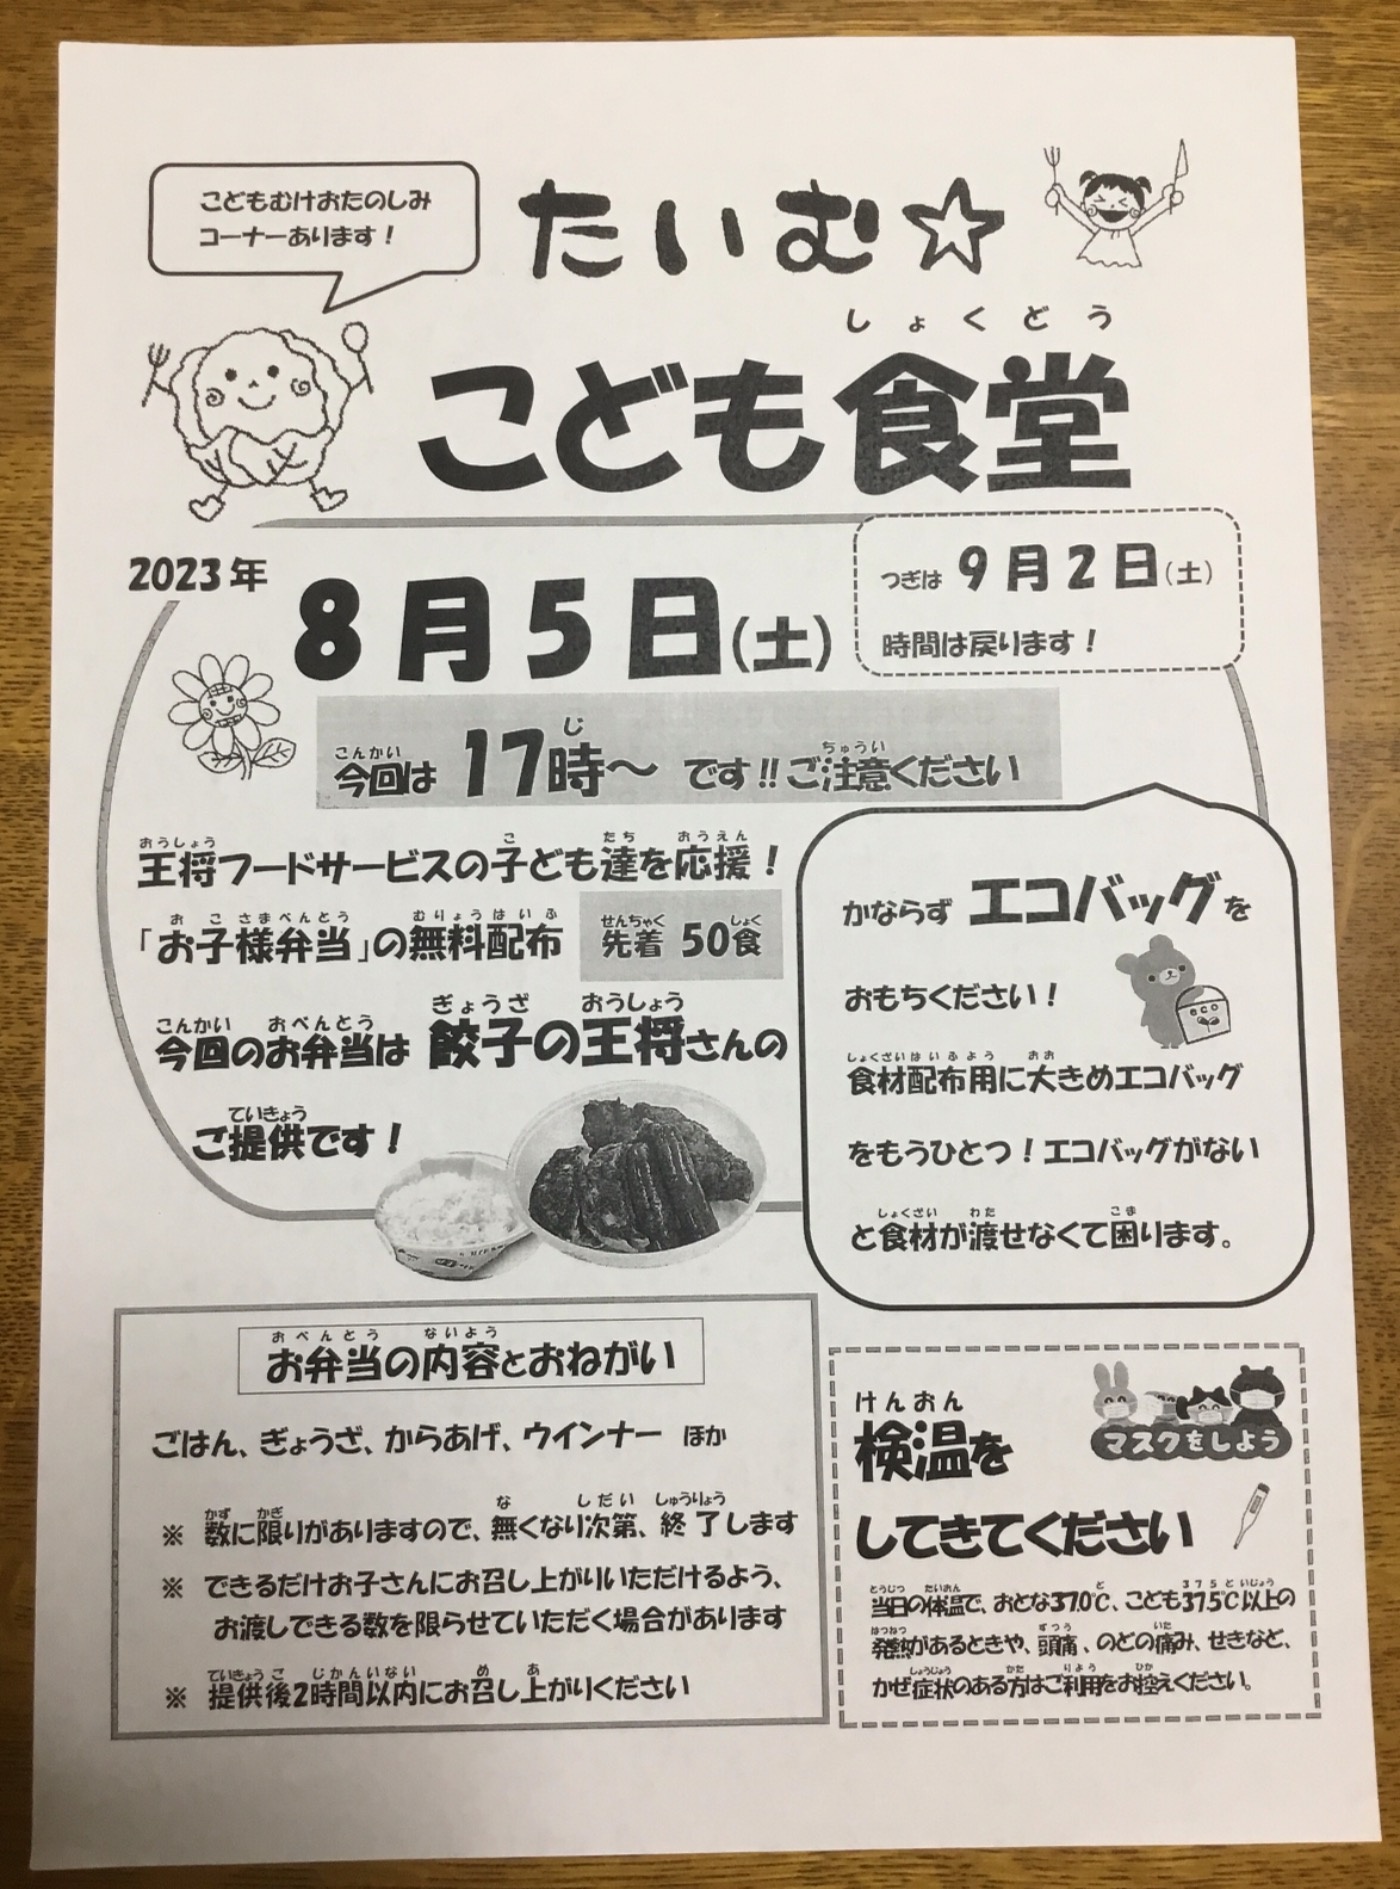 こどもむけおたのしみ
コーナーあります！
たいむ☆
しょくどう
こども食堂
2023年
8月5日(土)
つぎは 9月2日(土)
時間は戻ります！
こんかい じ ちゅうい
今回は 17時～ です!!ご注意ください
おうしょう こ たち おうえん
王将フードサービスの子ども達を応援！
お こ さまべんとう むりょうはいふ
「お子様弁当」の無料配布
せんちゃく しょく
先着 50食
こんかい おべんとう ぎょうざ おうしょう
今回のお弁当は 餃子の王将さんの
ていきょう
ご提供です！
かならず エコバッグを
おもちください！
しょくざいはいふよう おお
食材配布用に大きめエコバッグ
をもうひとつ！エコバッグがない
しょくざい わた こま
と食材が渡せなくて困ります。
おべんとう ないよう
お弁当の内容とおねがい
ごはん、ぎょうざ、からあげ、ウインナー ほか
かず かぎ な しだい しゅうりょう
※ 数に限りがありますので、無くなり次第、終了します
※ できるだけお子さんにお召し上がりいただけるよう、
お渡しできる数を限らせていただく場合があります
ていきょうご じかんいない め あ
※ 提供後2時間以内にお召し上がりください
けんおん
検温を
マスクをしよう
してきてください
とうじつ たいおん ど 375どいじょう
当日の体温で、おとな37.0℃、こども37.5℃以上の
はつねつ ずつう いた
発熱があるときや、頭痛、のどの痛み、せきなど、
しょうじょう かた りよう ひか
かぜ症状のある方はご利用をお控えください。